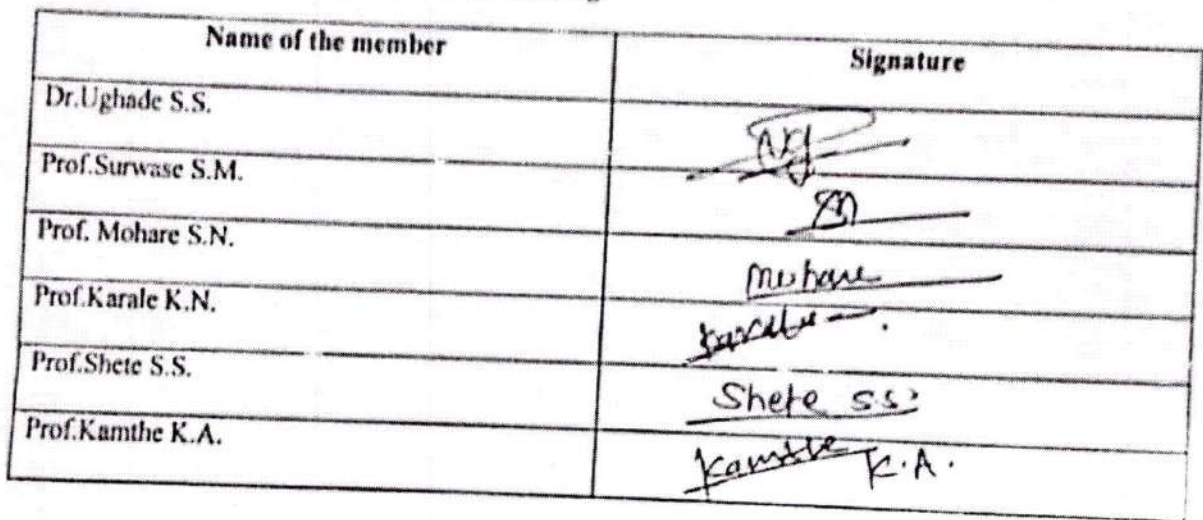 Name of the member Signature
Dr.Ughade S.S.
Prof.Surwase S.M.
Prof. Mohare S.N. Mohare
Prof.Karale K.N. Karale
Prof.Shete S.S. Shete S.S.
Prof.Kamthe K.A. Kamthe K.A.